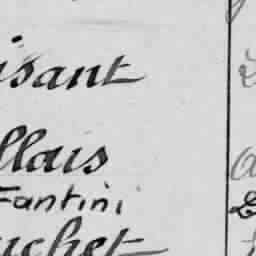 isant
llais
Fantini
uchet